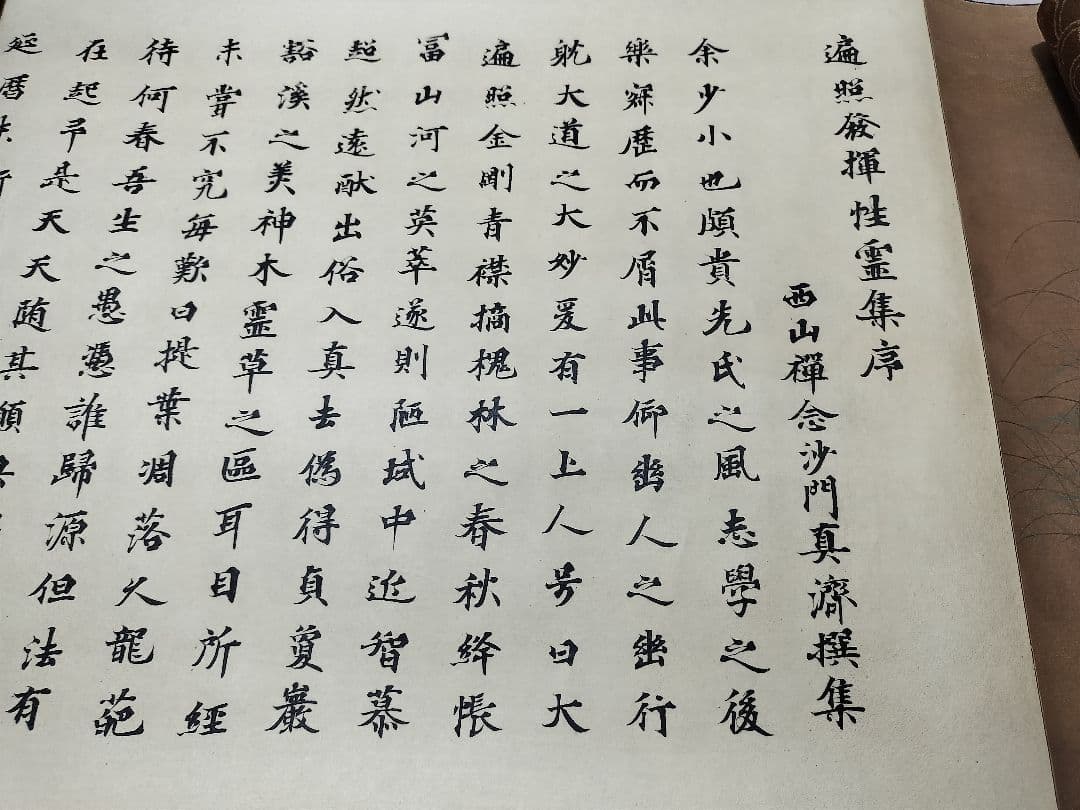 遍照發揮性靈集序
西山禪念沙門真濟撰集
余少小也頗貴先氏之風志學之後
樂寂歷而不屑此事仰幽人之幽行
躭大道之大妙爰有一上人号曰大
遍照金剛青襟摘槐林之春秋絳帳
冨山河之英萃遂則陋域中近智慕
超然遠猷出俗入真去偽得貞夐巖
豁溪之美神木靈草之區耳目所經
未嘗不究每歎曰提葉凋落久龍葩
待何春吾生之愚憑誰歸源但法有
在起予是天天随其願
延曆